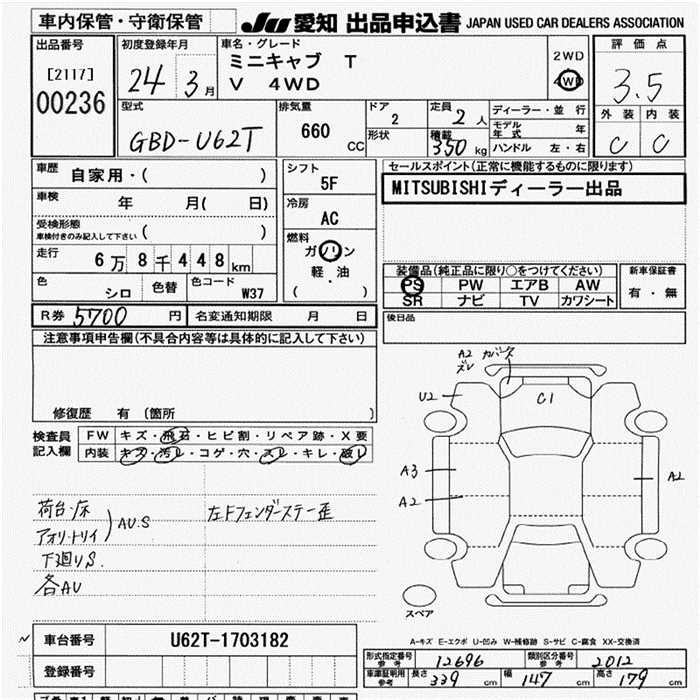 車内保管・守衛保管 JU 愛知 出品申込書 JAPAN USED CAR DEALERS ASSOCIATION
出品番号
[2117]
00236
初度登録年月
24 3月
車名・グレード
ミニキャブ T
V 4WD
2WD
4WD
評価点
3.5
外装 内装
C C
型式
GBD-U62T
排気量
660 CC
ドア
2
形状
定員
2人
積載
350 kg
ディーラー・並行
モデル年式 年
ハンドル 左・右
車歴
自家用・( )
車検
年 月( 日)
受検形態
車検付きのみ記入して下さい ( )
走行
6万8千448km
色
シロ
色替
色コード
W37
シフト
5F
冷房
AC
燃料
ガソリン
軽・油
( )
セールスポイント(正常に機能するものに限ります)
MITSUBISHIディーラー出品
装備品(純正品に限り○をつけてください)
PS PW エアB AW
SR ナビ TV カワシート
新車保証書
有・無
後日品
R券 5700円 名変通知期限 月 日
注意事項申告欄(不具合内容等は具体的に記入して下さい)
修復歴 有 (箇所 )
検査員記入欄
FW キズ・飛石・ヒビ割・リペア跡・X要
内装 キズ・汚レ・コゲ・穴・スレ・キレ・破レ
荷台・床
アオリ・トリイ
AU.S
下廻りS.
各AU
左Fフェンダーステー歪
A2 カバーズ
ズレ
U2
C1
A3
A2
A2
スペア
A-キズ E-エクボ U-凹み W-補修跡 S-サビ C-腐食 XX-交換済
車台番号 U62T-1703182
登録番号
形式指定番号 参考 12696 類別区分番号 参考 2012
車庫証明用 参考 長さ 339cm 幅 147cm 高さ 179cm